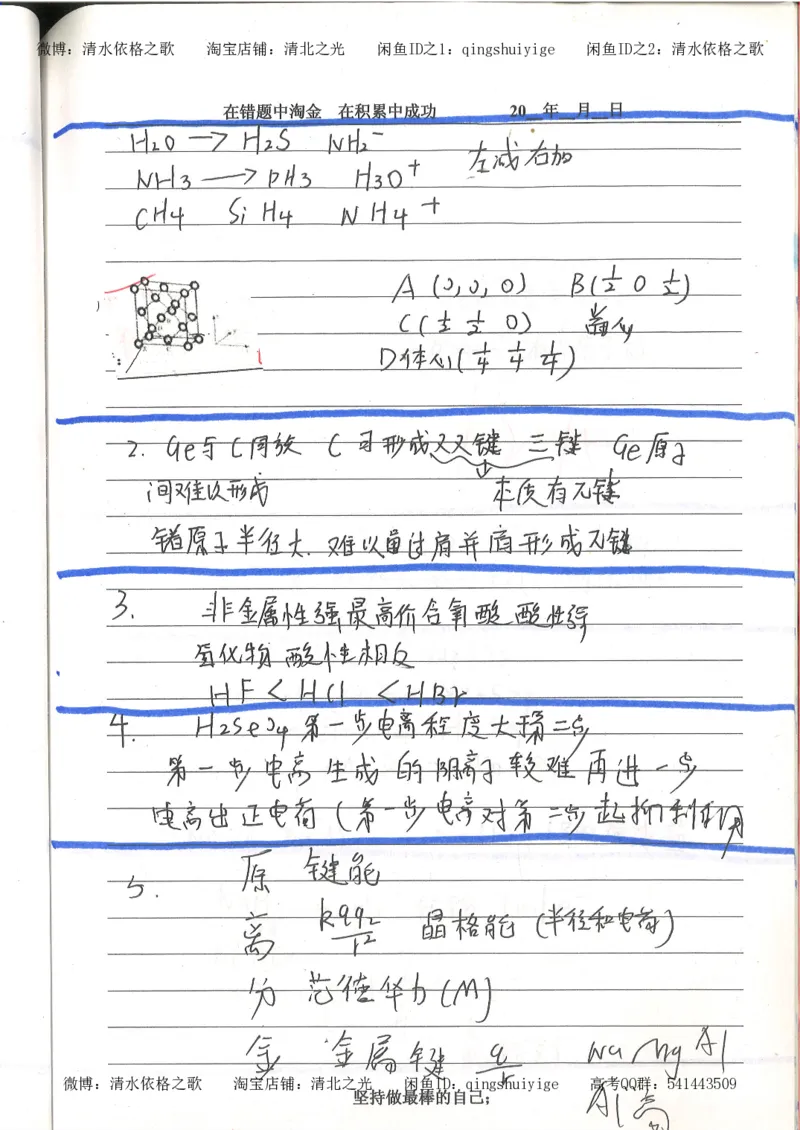 微博：清水依格之歌 淘宝店铺：清北之光 闲鱼ID之1：qingshuiyige 闲鱼ID之2：清水依格之歌
在错题中淘金 在积累中成功 20__年__月__日
H2O → H2S NH2⁻ 左减右加
NH3 → PH3 H3O⁺
CH4 SiH4 NH4⁺
A (0,0,0) B(1/2 0 1/2)
C(1/2 1/2 0) 面心
D体心(1/4 1/4 1/4)
2. Ge与C同族 C可形成双叉键 三键 Ge原子
间难以形成 本质有π键
锗原子半径大. 难以通过肩并肩形成π键
3. 非金属性强最高价含氧酸酸性强
氢化物酸性相反
HF<HCl<HBr
4. H2SeO4第一步电离程度大于第二步
第一步电离生成的阴离子较难再进一步
电离出正电荷(第一步电离对第二步起抑制作用
5. 原 键能
离 kqq2/r² 晶格能(半径和电荷)
分 范德华力(M)
金 金属键 q/r Na Mg Al
Al高
微博：清水依格之歌 淘宝店铺：清北之光 闲鱼ID：qingshuiyige 高考QQ群：541443509
坚持做最棒的自己；